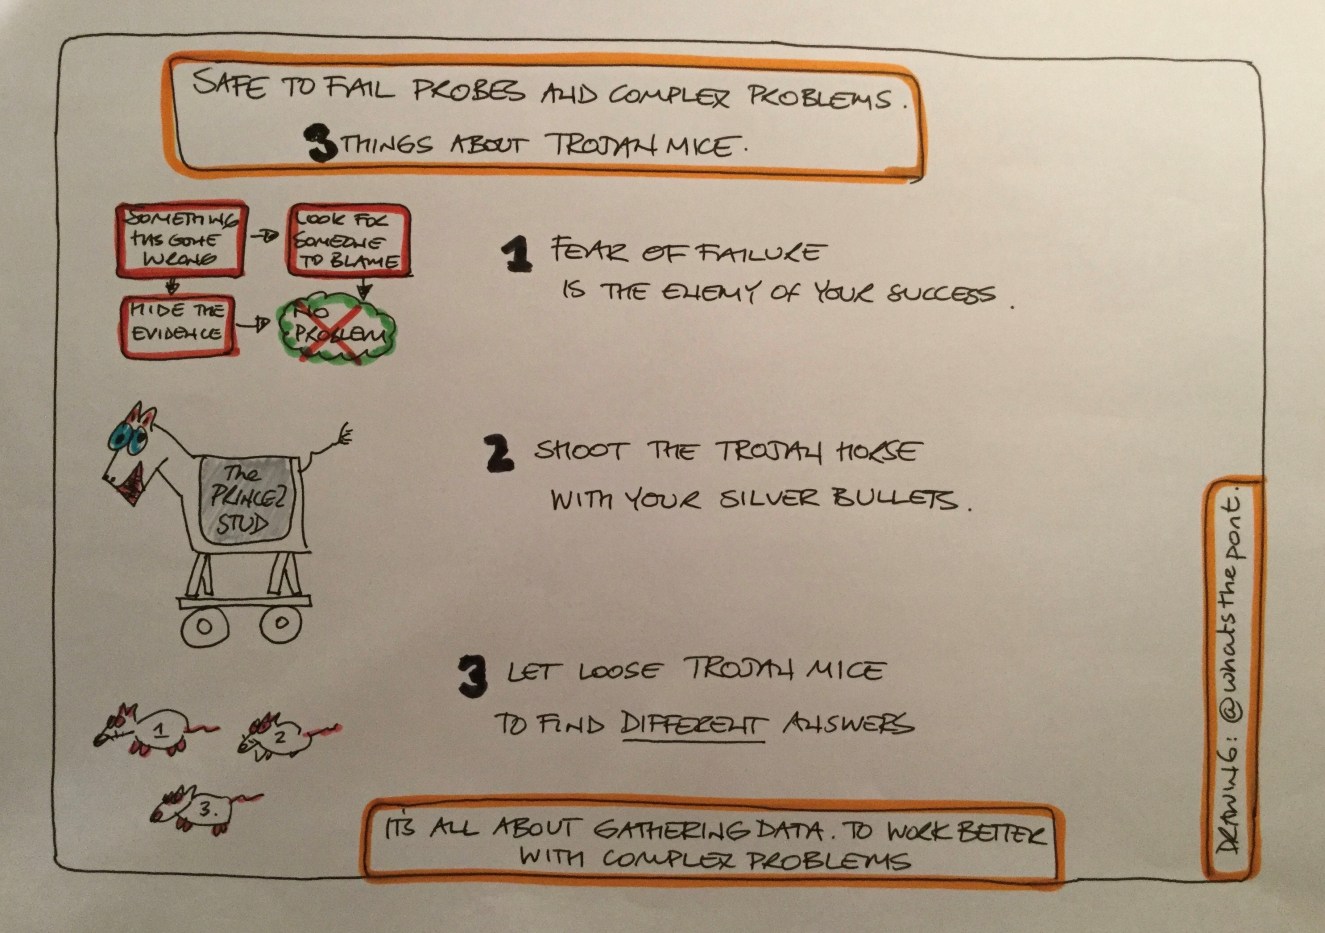 SAFE TO FAIL PROBES AND COMPLEX PROBLEMS.
3 THINGS ABOUT TROJAN MICE.
SOMETHING
HAS GONE
WRONG
LOOK FOR
SOMEONE
TO BLAME
HIDE THE
EVIDENCE
NO
PROBLEM
1 FEAR OF FAILURE
IS THE ENEMY OF YOUR SUCCESS.
The
PRINCE2
STUD
2 SHOOT THE TROJAN HORSE
WITH YOUR SILVER BULLETS.
1
2
3.
3 LET LOOSE TROJAN MICE
TO FIND DIFFERENT ANSWERS
IT'S ALL ABOUT GATHERING DATA. TO WORK BETTER
WITH COMPLEX PROBLEMS
DRAWING: @whatsthepont.